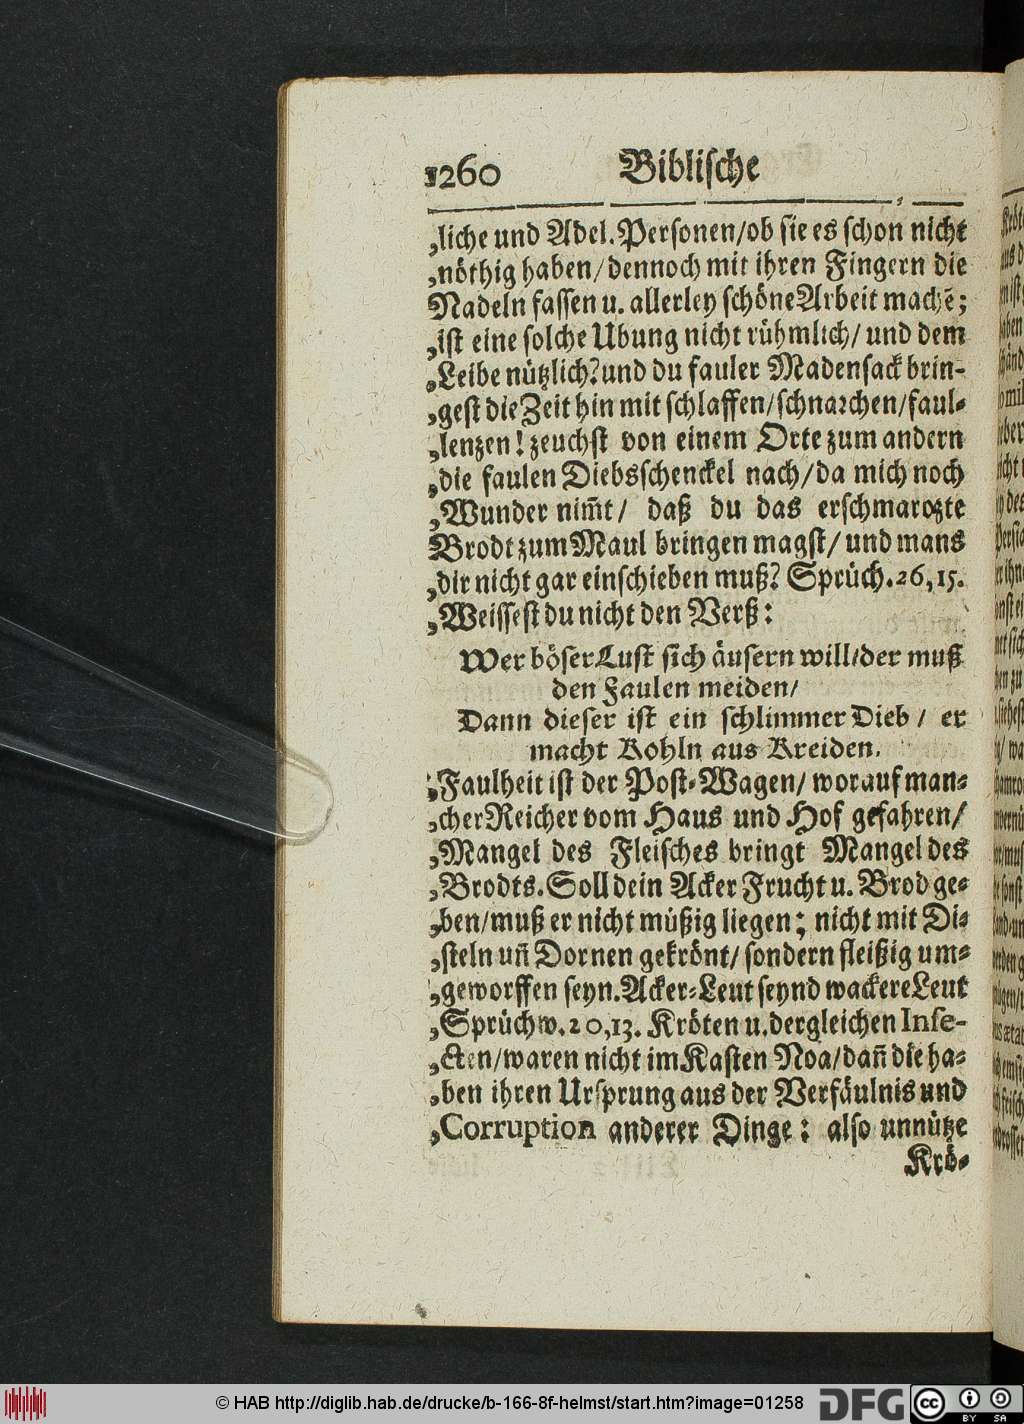 1260 Biblische
„liche und Adel. Personen/ob sie es schon nicht
„nöthig haben/dennoch mit ihren Fingern die
Nadeln fassen u. allerley schöne Arbeit machẽ;
„ist eine solche Ubung nicht rühmlich/ und dem
„Leibe nützlich? und du fauler Madensack brin-
„gest die Zeit hin mit schlaffen/schnarchen/faul-
„lenzen! zeuchst von einem Orte zum andern
„die faulen Diebsschenckel nach/da mich noch
„Wunder nim̃t/ daß du das erschmarotzte
Brodt zum Maul bringen magst/ und mans
„dir nicht gar einschieben muß? Sprüch. 26, 15.
„Weissest du nicht den Verß:
Wer böser Lust sich äusern will/der muß
den Faulen meiden/
Dann dieser ist ein schlimmer Dieb / er
macht Kohln aus Kreiden.
„Faulheit ist der Post-Wagen/ worauf man-
„cher Reicher vom Haus und Hof gefahren/
„Mangel des Fleisches bringt Mangel des
„Brodts. Soll dein Acker Frucht u. Brod ge-
„ben/muß er nicht müßig liegen; nicht mit Di-
„steln uñ Dornen gekrönt/ sondern fleißig um-
„geworffen seyn. Acker-Leut seynd wackere Leut
„Sprüchw. 20, 13. Kröten u. dergleichen Inse-
„cten/waren nicht im Kasten Noa/dañ die ha-
„ben ihren Ursprung aus der Verfäulnis und
„Corruption anderer Dinge: also unnütze
Krö-
© HAB http://diglib.hab.de/drucke/b-166-8f-helmst/start.htm?image=01258 DFG cc BY SA